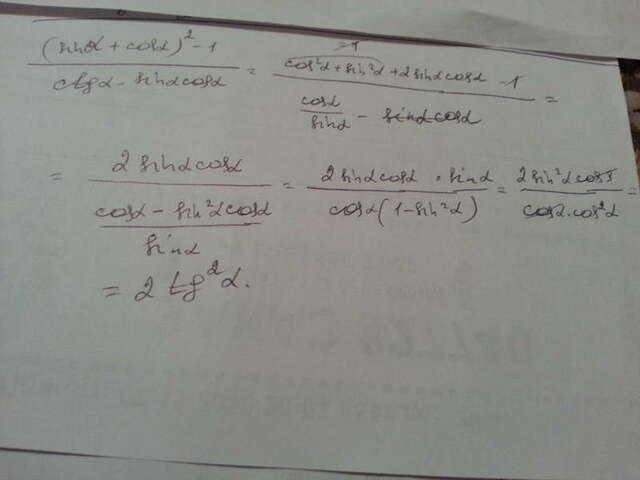 (sinα + cosα)² - 1 / ctgα - sinα cosα = cos²α + sin²α + 2 sinα cosα - 1 / cosα/sinα - sinα cosα =
=1
= 2 sinα cosα / (cosα - sin²α cosα / sinα) = 2 sinα cosα · sinα / cosα(1 - sin²α) = 2 sin²α cosα / cosα · cos²α
= 2 tg²α.